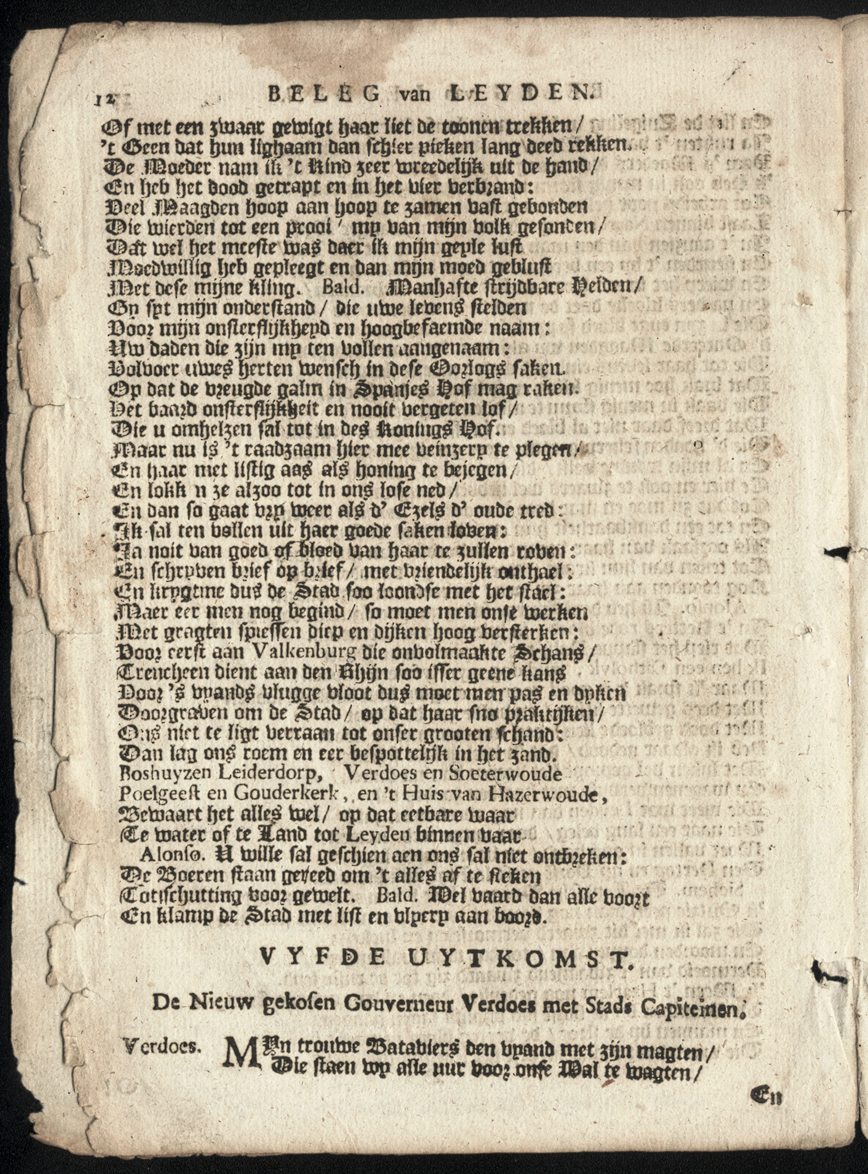 12 BELEG van LEYDEN.
Of met een zwaar gewigt haar liet de toonen trekken/
't Geen dat hun lighaam dan schier pieken lang deed rekken.
De Moeder nam ik 't Kind zeer wreedelijk uit de hand/
En heb het dood getrapt en in het vier verbrand:
Veel Maagden hoop aan hoop te zamen vast gebonden
Die wierden tot een prooi/ my van mijn volk gesonden/
Dat wel het meeste was daer ik mijn geyle lust
Moedwillig heb gepleegt en dan mijn moed geblust
Met dese mijne kling. Bald. Manhafte strijdbare Helden/
Gy syt mijn onderstand/ die uwe levens stelden
Voor mijn onsterflijkheyd en hoogbefaemde naam:
Uw daden die zijn my ten vollen aangenaam:
Volvoer uwes herten wensch in dese Oorlogs saken.
Op dat de vreugde galm in Spanjes Hof mag raken.
Het baard onsterflijkheit en nooit vergeten lof/
Die u omhelzen sal tot in des Konings Hof.
Maar nu is 't raadzaam hier mee veinzery te plegen/
En haar met listig aas als honing te bejegen/
En lokk n ze alzoo tot in ons lose ned/
En dan so gaat vry weer als d' Ezels d' oude tred:
Ik sal ten vollen uit haer goede saken loven:
Ja noit van goed of bloed van haar te zullen roven:
En schryven brief op brief/ met vriendelijk onthael:
En krygtme dus de Stad soo loondse met het stael:
Maer eer men nog begind/ so moet men onse werken
Met gragten spiessen diep en dijken hoog versterken:
Voor eerst aan Valkenburg die onvolmaakte Schans/
Trencheen dient aan den Rhijn soo isser geene kans
Voor 's vyands vlugge vloot dus moet men pas en dyken
Doorgraven om de Stad/ op dat haar sno praktijken/
Ons niet te ligt verraan tot onser grooten schand:
Dan lag ons roem en eer bespottelijk in het zand.
Boshuyzen Leiderdorp, Verdoes en Soeterwoude
Poelgeest en Gouderkerk, en 't Huis van Hazerwoude,
Bewaart het alles wel/ op dat eetbare waar
Te water of te Land tot Leyden binnen vaar
Alonso. U wille sal geschien aen ons sal niet ontbreken:
De Boeren staan gereed om 't alles af te steken
Totischutting voor gewelt. Bald. Wel vaard dan alle voort
En klamp de Stad met list en vlyery aan boord.
VYFDE UYTKOMST.
De Nieuw gekosen Gouverneur Verdoes met Stads Capiteinen.
Verdoes. MYn trouwe Bataviers den vyand met zijn magten/
Die staen wy alle uur voor onse Wal te wagten/
En